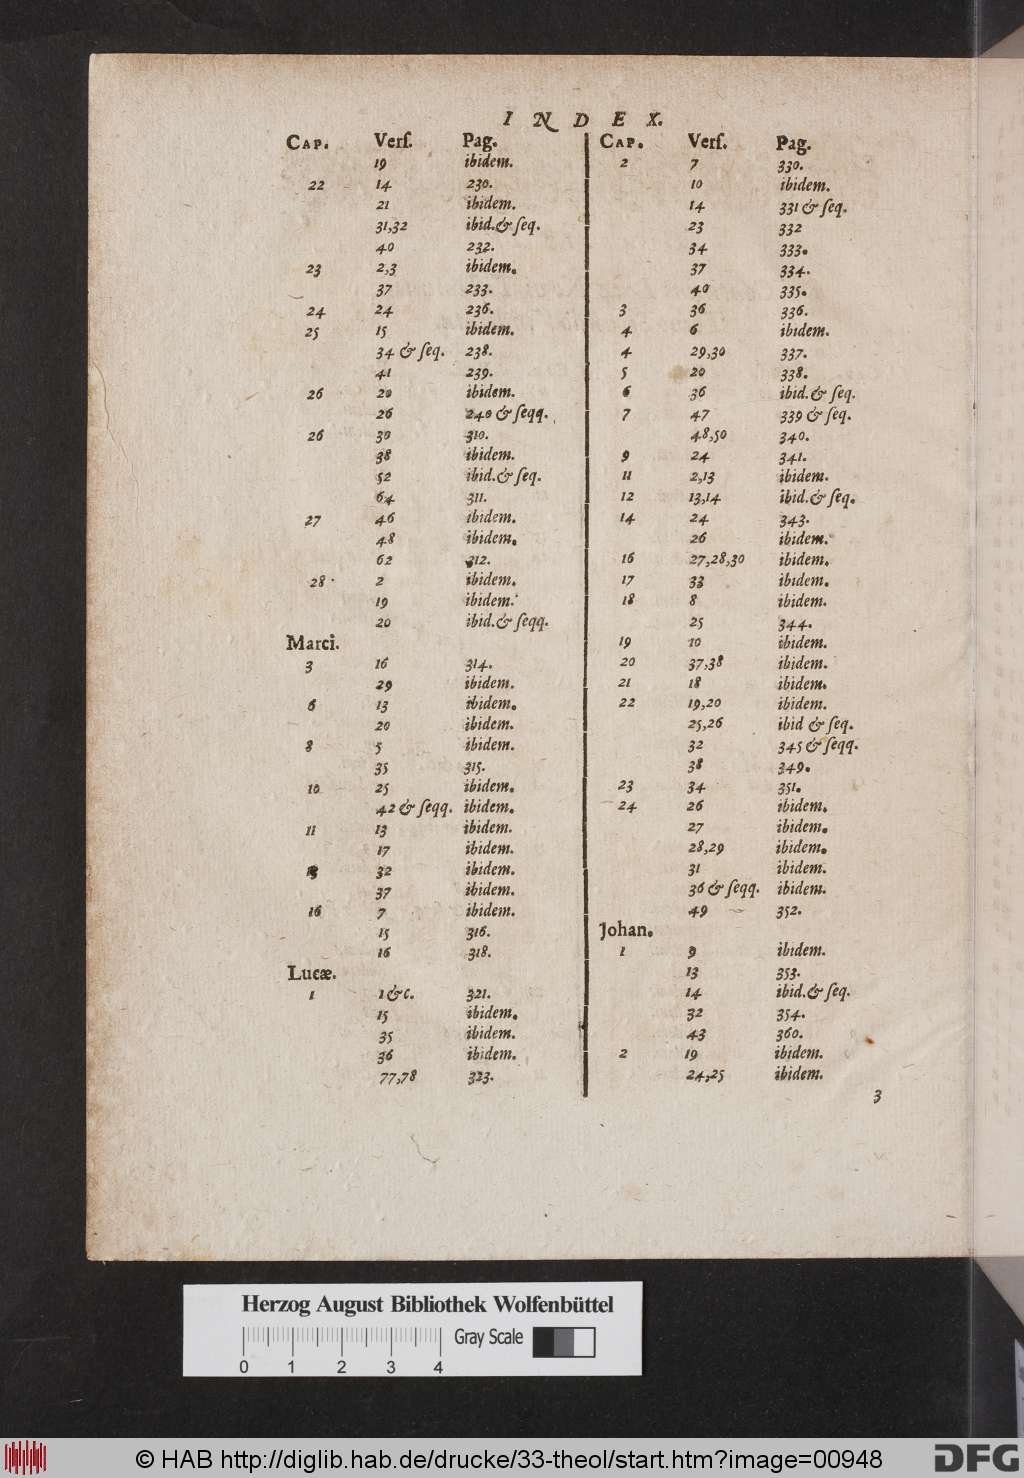 INDEX.
CAP. Verſ. Pag.
19 ibidem.
22 14 230.
21 ibidem.
31,32 ibid.& ſeq.
40 232.
23 2,3 ibidem.
37 233.
24 24 236.
25 15 ibidem.
34 & ſeq. 238.
41 239.
26 20 ibidem.
26 240 & ſeqq.
26 30 310.
38 ibidem.
52 ibid.& ſeq.
64 311.
27 46 ibidem.
48 ibidem.
62 312.
28 2 ibidem.
19 ibidem.
20 ibid.& ſeqq.
Marci.
3 16 314.
29 ibidem.
6 13 ibidem.
20 ibidem.
8 5 ibidem.
35 315.
10 25 ibidem.
42 & ſeqq. ibidem.
11 13 ibidem.
17 ibidem.
13 32 ibidem.
37 ibidem.
16 7 ibidem.
15 316.
16 318.
Lucæ.
1 1 &c. 321.
15 ibidem.
35 ibidem.
36 ibidem.
77,78 323.
CAP. Verſ. Pag.
2 7 330.
10 ibidem.
14 331 & ſeq.
23 332
34 333.
37 334.
40 335.
3 36 336.
4 6 ibidem.
4 29,30 337.
5 20 338.
6 36 ibid.& ſeq.
7 47 339 & ſeq.
48,50 340.
9 24 341.
11 2,13 ibidem.
12 13,14 ibid.& ſeq.
14 24 343.
26 ibidem.
16 27,28,30 ibidem.
17 33 ibidem.
18 8 ibidem.
25 344.
19 10 ibidem.
20 37,38 ibidem.
21 18 ibidem.
22 19,20 ibidem.
25,26 ibid & ſeq.
32 345 & ſeqq.
38 349.
23 34 351.
24 26 ibidem.
27 ibidem.
28,29 ibidem.
31 ibidem.
36 & ſeqq. ibidem.
49 352.
Johan.
1 9 ibidem.
13 353.
14 ibid.& ſeq.
32 354.
43 360.
2 19 ibidem.
24,25 ibidem.
3
Herzog August Bibliothek Wolfenbüttel
Gray Scale
0 1 2 3 4
© HAB http://diglib.hab.de/drucke/33-theol/start.htm?image=00948
DFG